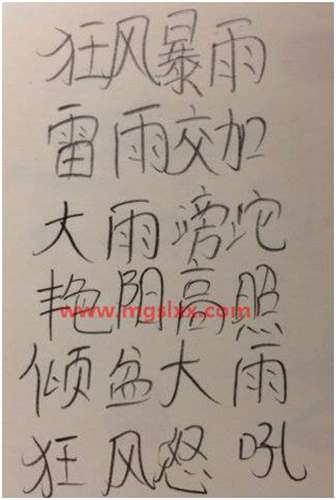 狂风暴雨
雷雨交加
大雨滂沱
艳阳高照
www.mgslxx.com
倾盆大雨
狂风怒吼